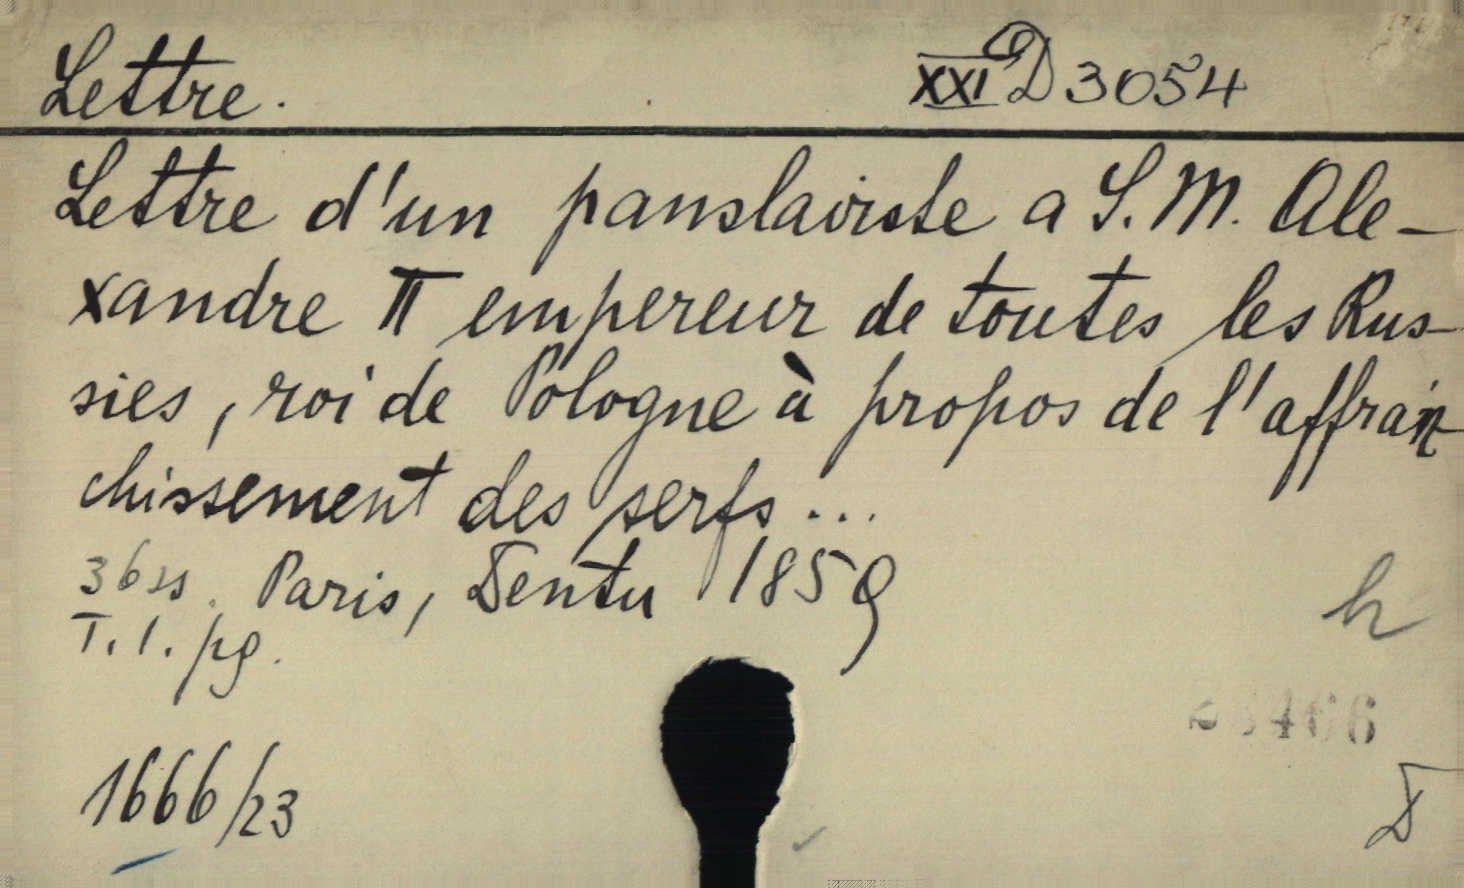 Lettre. XXI D 3054
Lettre d'un panslaviste a S. M. Ale-
xandre II empereur de toutes les Rus-
sies, roi de Pologne à propos de l'affran
chissement des serfs ...
36 ss. Paris, Dentu 1859
T. 1. pg.
h
1666/23
D